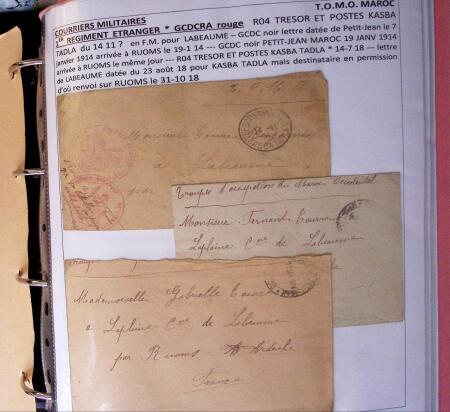 T.O.M.O. MAROC
COURRIERS MILITAIRES
1er REGIMENT ETRANGER * GCDCRA rouge R04 TRESOR ET POSTES KASBA
TADLA du 14 11 ? en F.M. pour LABEAUME – GCDC noir lettre datée de Petit-Jean le 7
janvier 1914 arrivée à RUOMS le 19-1 14 --- GCDC noir PETIT-JEAN MAROC 19 JANV 1914
arrivée à RUOMS le même jour --- R04 TRESOR ET POSTES KASBA TADLA * 14-7 18 --- lettre
de LABEAUME datée du 23 août 18 pour KASBA TADLA mais destinataire en permission
d'où renvoi sur RUOMS le 31-10 18
Monsieur
a Labeaume
par
Troupes d'occupation du Maroc Occidental
Monsieur Fernand
Laplaine Cne de Labeaume
Mademoiselle Gabrielle
a Laplaine Cne de Labeaume
par Ruoms Ardèche
France